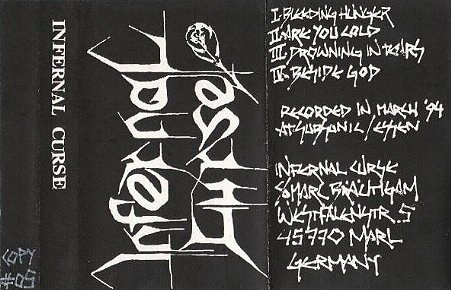 INFERNAL CURSE
COPY
#05
Infernal
Curse
I. BLEEDING HUNGER
II. ARE YOU COLD
III. DROWNING IN TEARS
IV. BESIDE GOD
RECORDED IN MARCH '94
AT SUBSONIC / ESSEN
INFERNAL CURSE
C/O MARC BRÄUTIGAM
WESTFALENSTR. 5
45770 MARL
GERMANY